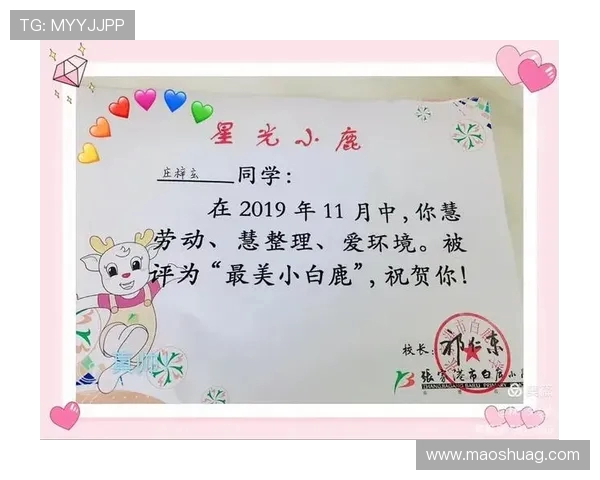 TG: MYYJJPP
星光小鹿
庄梓玄 同学：
在2019年11月中，你慧
劳动、慧整理、爱环境。被
评为“最美小白鹿”，祝贺你！
校长：祁仁东
张家港市白鹿小
www.maoshuag.com